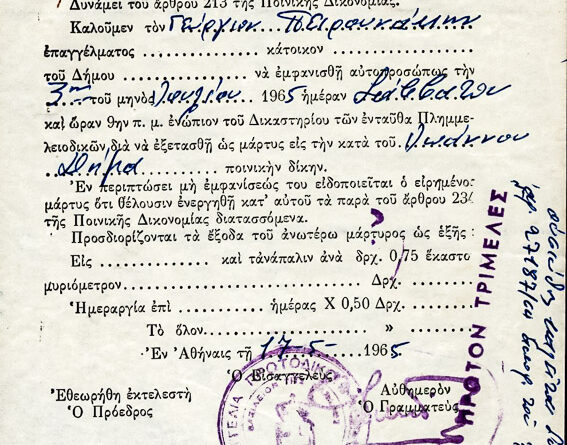 Δυνάμει τοῦ ἄρθρου 213 τῆς Ποινικῆς Δικονομίας.
Καλοῦμεν τὸν Γεώργιον
ἐπαγγέλματος ............ κάτοικον ............
τοῦ Δήμου ............ νὰ ἐμφανισθῇ αὐτοπροσώπως τὴν
3ην τοῦ μηνὸς Ἰουλίου 1965 ἡμέραν Σάββατον
καὶ ὥραν 9ην π. μ. ἐνώπιον τοῦ Δικαστηρίου τῶν ἐνταῦθα Πλημμε-
λειοδικῶν διὰ νὰ ἐξετασθῇ ὡς μάρτυς εἰς τὴν κατὰ τοῦ Ἰωάννου
Δήμα ............ ποινικὴν δίκην.
Ἐν περιπτώσει μὴ ἐμφανίσεώς του εἰδοποιεῖται ὁ εἰρημένος
μάρτυς ὅτι θέλουσιν ἐνεργηθῇ κατ' αὐτοῦ τὰ παρὰ τοῦ ἄρθρου 23
τῆς Ποινικῆς Δικονομίας διατασσόμενα.
Προσδιορίζονται τὰ ἔξοδα τοῦ ἀνωτέρω μάρτυρος ὡς ἑξῆς :
Εἰς ............ καὶ τἀνάπαλιν ἀνὰ δρχ. 0,75 ἕκαστο
μυριόμετρον ............ Δρχ. ............
Ἡμεραργία ἐπὶ ............ ἡμέρας Χ 0,50 Δρχ. ............
Τὸ ὅλον ............ » ............
Ἐν Ἀθήναις τῇ 17-5- 1965.
Ὁ Εἰσαγγελεὺς
Ἐθεωρήθη ἐκτελεστὴ Αὐθημερὸν
Ὁ Πρόεδρος Ὁ Γραμματεὺς
ΠΡΩΤΟΝ ΤΡΙΜΕΛΕΣ